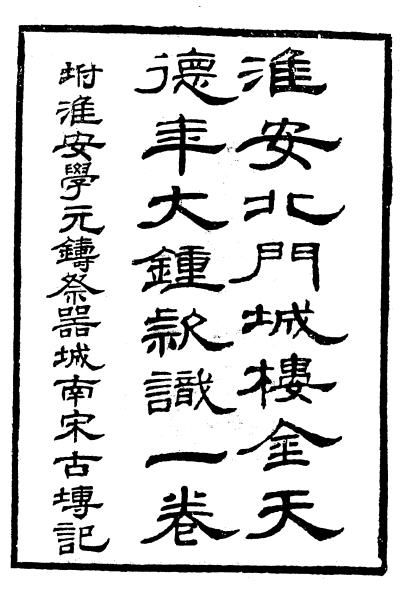 淮安北門城樓金天
德年大鍾款識一卷
坿淮安學元鑄祭器城南宋古塼記